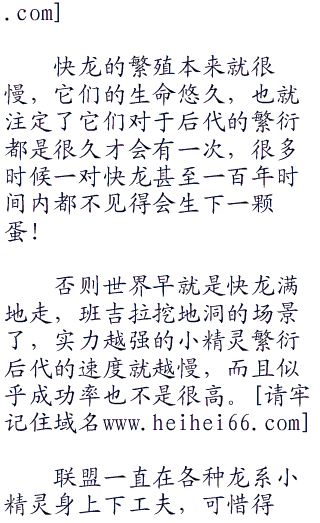 .com]
快龙的繁殖本来就很
慢，它们的生命悠久，也就
注定了它们对于后代的繁衍
都是很久才会有一次，很多
时候一对快龙甚至一百年时
间内都不见得会生下一颗
蛋！
否则世界早就是快龙满
地走，班吉拉挖地洞的场景
了，实力越强的小精灵繁衍
后代的速度就越慢，而且似
乎成功率也不是很高。[请牢
记住域名www.heihei66.com]
联盟一直在各种龙系小
精灵身上下工夫，可惜得